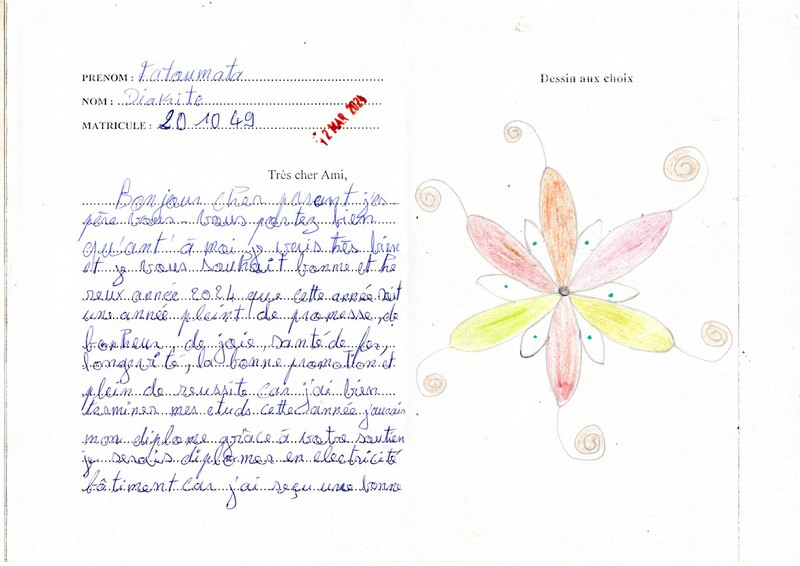 PRENOM : Fatoumata
NOM : Diakite
MATRICULE : 20 10 49
12 MAR 2024
Très cher Ami,
Bonjour cher parent j'es-
père vous vous portez bien
qu'ant' à moi je vais très bien
et je vous souhait bonne et he
reux année 2024 que cette année soit
une année pleint de promesse, de
bonheur, de joie, santé de fer,
longevité, la bonne promotion et
plein de reussite car j'ai bien
terminer mes etuds cette année j'aurais
mon diplome grâce à votre soutien
je serais diplômes en electricité
bâtiment car j'ai reçu une bonne
Dessin aux choix